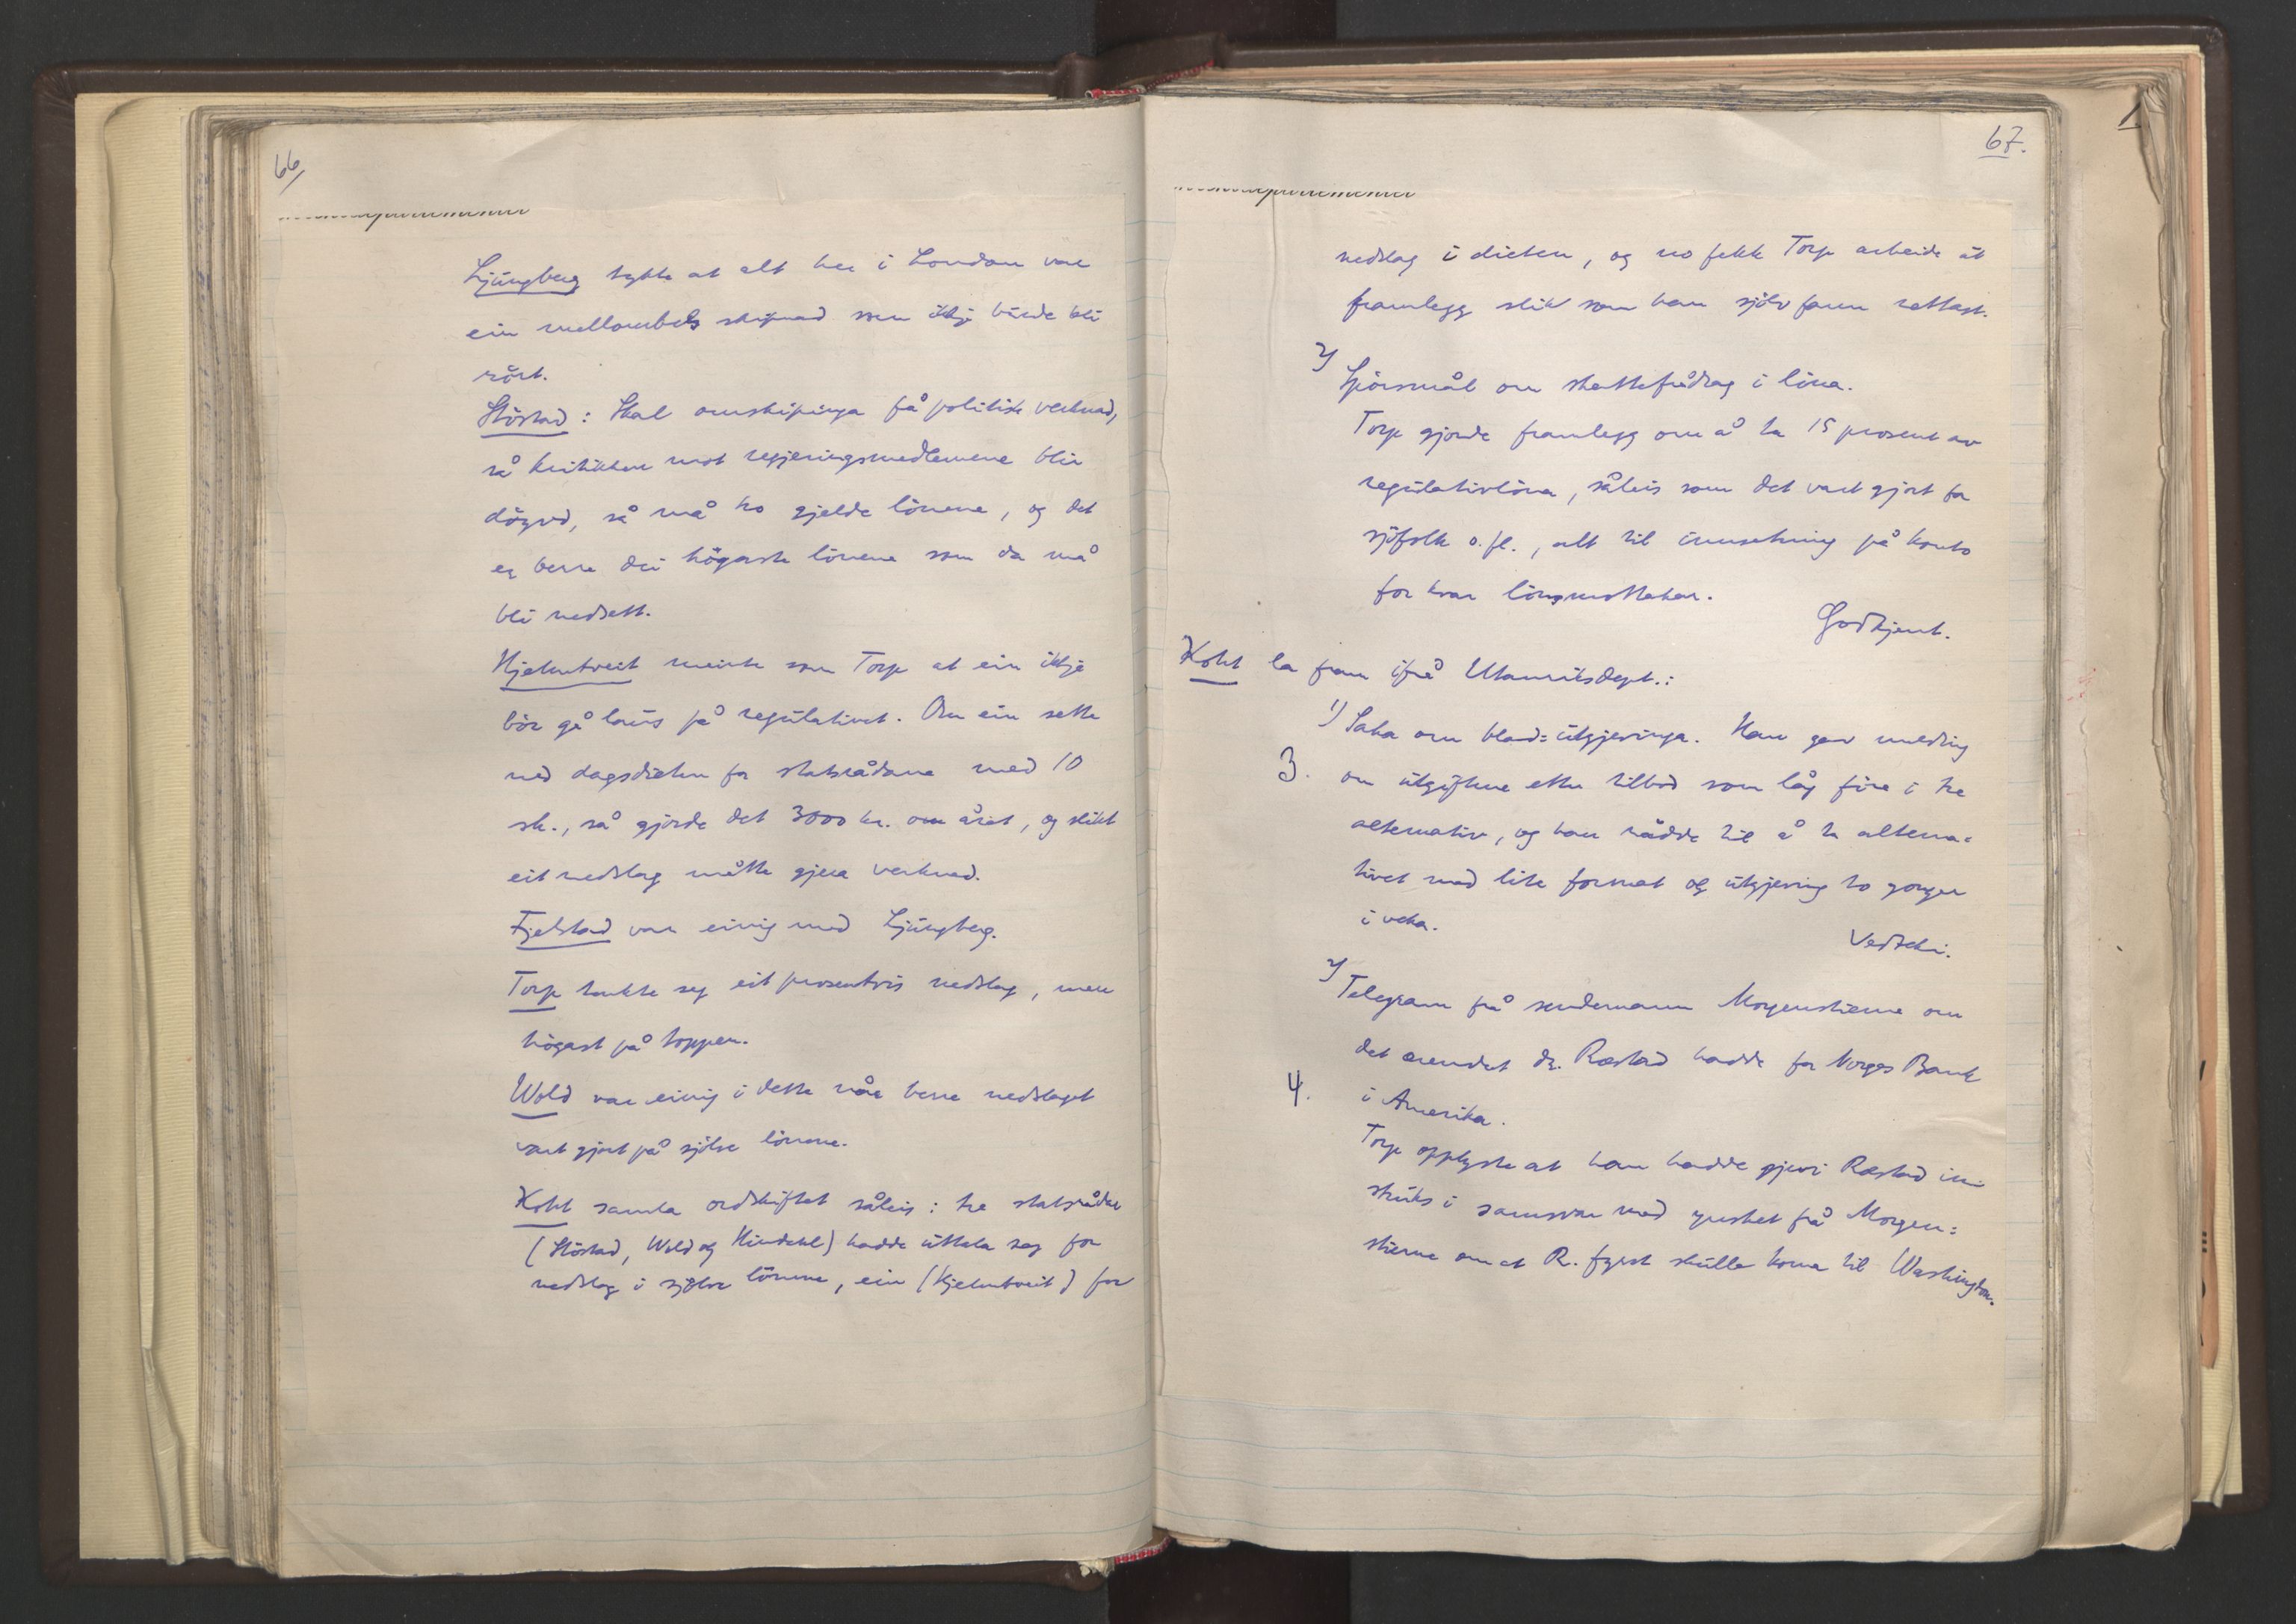 66
Ljungberg tykte at alt her i London var
ein mellombels skipnad som ikkje burde bli
rört.
Støstad: Skal omskipinga få politisk verknad,
så kritikken mot regjeringsmedlemene blir
döyvd, så må ho gjelde lönene, og det
er berre dei högaste lönene som da må
bli nedsett.
Hjelmtveit meinte som Torp at ein ikkje
bör gå laus på regulativet. Om ein sette
ned dagsdieten for statsrådane med 10
sh., så gjorde det 3000 kr. om året, og slikt
eit nedslag måtte gjera verknad.
Fjelstad var einig med Ljungberg.
Torp tenkte seg eit prosentvis nedslag, men
högast på toppen.
Wold var einig i dette når berre nedslaget
vart gjort på sjölve lönene.
Koht samla ordskiftet såleis: tre statsrådar
(Støstad, Wold og Hindahl) hadde uttala seg for
nedslag i sjölve lönene, ein (Hjelmtveit) for
67.
nedslag i dieten, og no fekk Torp arbeide ut
framlegg slik som han sjölv fann rettast.
2) Spörsmål om skattefrådrag i löna.
Torp gjorde framlegg om å ta 15 prosent av
regulativlöna, såleis som det vart gjort for
sjöfolk o.fl., alt til innsetning på konto
for kvar lönsmottakar.
Godkjent.
Koht la fram ifrå Utanriksdept.:
1) Saka om blad-utgjevinga. Han gav melding
3. om utgiftene etter tilbod som låg fire i tre
alternativ, og han rådde til å ta alterna-
tivet med lite format og utgjeving to gonger
i veka.
Vedteki.
2) Telegram frå sendemann Morgenstierne om
det ærendet dr. Ræstad hadde for Norges Bank
4. i Amerika.
Torp opplyste at han hadde gjevi Ræstad in-
struks i samsvar med ynsket frå Morgen-
stierne om at R. fyrst skulle koma til Washington.